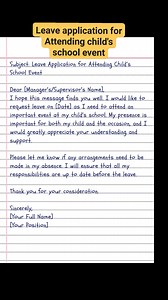 Leave application for
Attending child's
school event
Subject: Leave Application for Attending Child's
School Event
Dear [Manager's/Supervisor's Name],
I hope this message finds you well. I would like to
request leave on [Date] as I need to attend an
important event at my child's school. My presence is
important for both my child and the occasion, and I
would greatly appreciate your understanding and
support.
Please let me know if any arrangements need to be
made in my absence. I will ensure that all my
responsibilities are up to date before the leave.
Thank you for your consideration.
Sincerely,
[Your Full Name]
[Your Position]